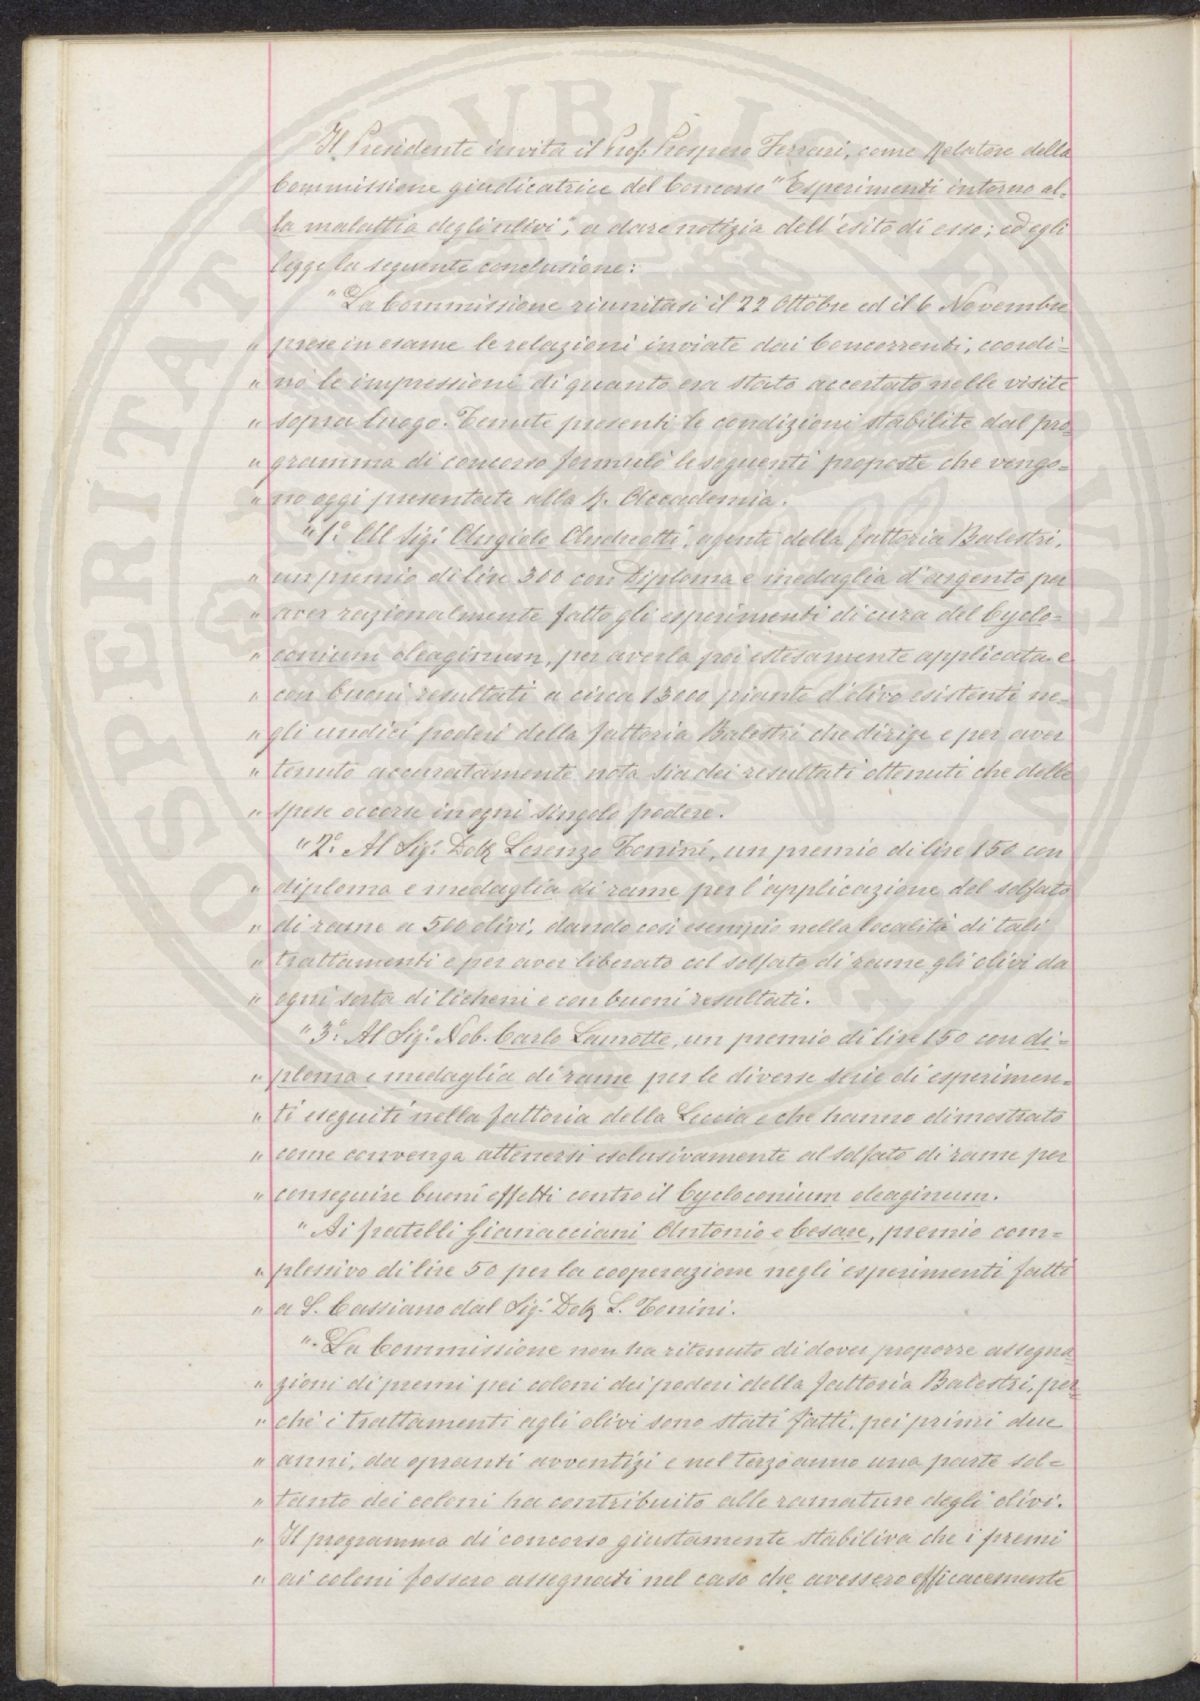 Il Presidente invita il Prof. Prospero Ferrari, come Relatore della
Commissione giudicatrice del Concorso "Esperimenti intorno al-
la malattia degli olivi", a dare notizia dell'esito di esso; ed egli
legge la seguente conclusione:
"La Commissione riunitasi il 22 Ottobre ed il 6 Novembre
" prese in esame le relazioni inviate dai Concorrenti, coordi=
" nò le impressioni di quanto era stato accertato nelle visite
" sopra luogo. Tenute presenti le condizioni stabilite dal pro=
" gramma di concorso formulò le seguenti proposte che vengo=
" no oggi presentate alla R. Accademia.
"1°. Al Sig.r Angiolo Andreotti, agente della fattoria Balestri,
" un premio di lire 300 con Diploma e medaglia d'argento per
" aver razionalmente fatto gli esperimenti di cura del Cyclo=
" conium oleaginum, per averla poi estesamente applicata e
" con buoni resultati a circa 13000 piante d'olivo esistenti ne=
" gli undici poderi della fattoria Balestri che dirige e per aver
" tenuto accuratamente nota sia dei resultati ottenuti che delle
" spese occorse in ogni singolo podere.
"2°. Al Sig.r Dott. Lorenzo Tonini, un premio di lire 150 con
" diploma e medaglia di rame per l'applicazione del solfato
" di rame a 500 olivi, dando così esempio nella località di tali
" trattamenti e per aver liberato col solfato di rame gli olivi da
" ogni sorta di licheni e con buoni resultati.
"3°. Al Sig.r Nob. Carlo Lamotte, un premio di lire 150 con di=
" ploma e medaglia di rame per le diverse serie di esperimen=
" ti eseguiti nella fattoria della Leccia e che hanno dimostrato
" come convenga attenersi esclusivamente al solfato di rame per
" conseguire buoni effetti contro il Cycloconium oleaginum.
" Ai fratelli Gianacciani Antonio e Cesare, premio com=
" plessivo di lire 50 per la cooperazione negli esperimenti fatti
" a S. Cassiano dal Sig.r Dott. L. Tonini.
" La Commissione non ha ritenuto di dover proporre assegna=
" zioni di premi pei coloni dei poderi della fattoria Balestri, per=
" chè i trattamenti agli olivi sono stati fatti, pei primi due
" anni, da opranti avventizi e nel terzo anno una parte sol=
" tanto dei coloni ha contribuito alle ramature degli olivi.
" Il programma di concorso giustamente stabiliva che i premi
" ai coloni fossero assegnati nel caso che avessero efficacemente